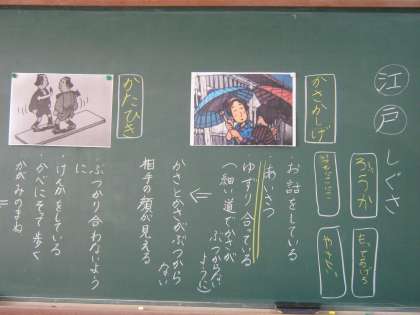 江戸しぐさ
ろうか
もってあげる
やさしい
かさかしげ
・お話をしている
・あいさつ
ゆずり合っている
(細い道でかさが
ぶつからない
ように)
かさとかさがぶつから
ない
相手の顔が見える
かたひき
ぶつかり合わないよう
に
・けんかをしている
・かべにそって歩く
かがみのまね